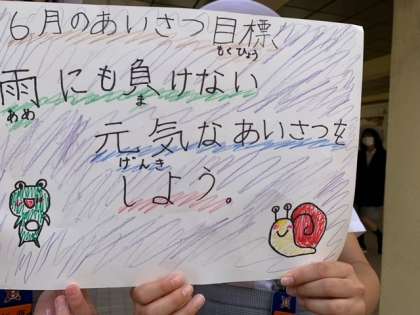 6月のあいさつ目標、
もくひょう
雨にも負けない
あめ
ま
元気なあいさつを
げんき
しよう。